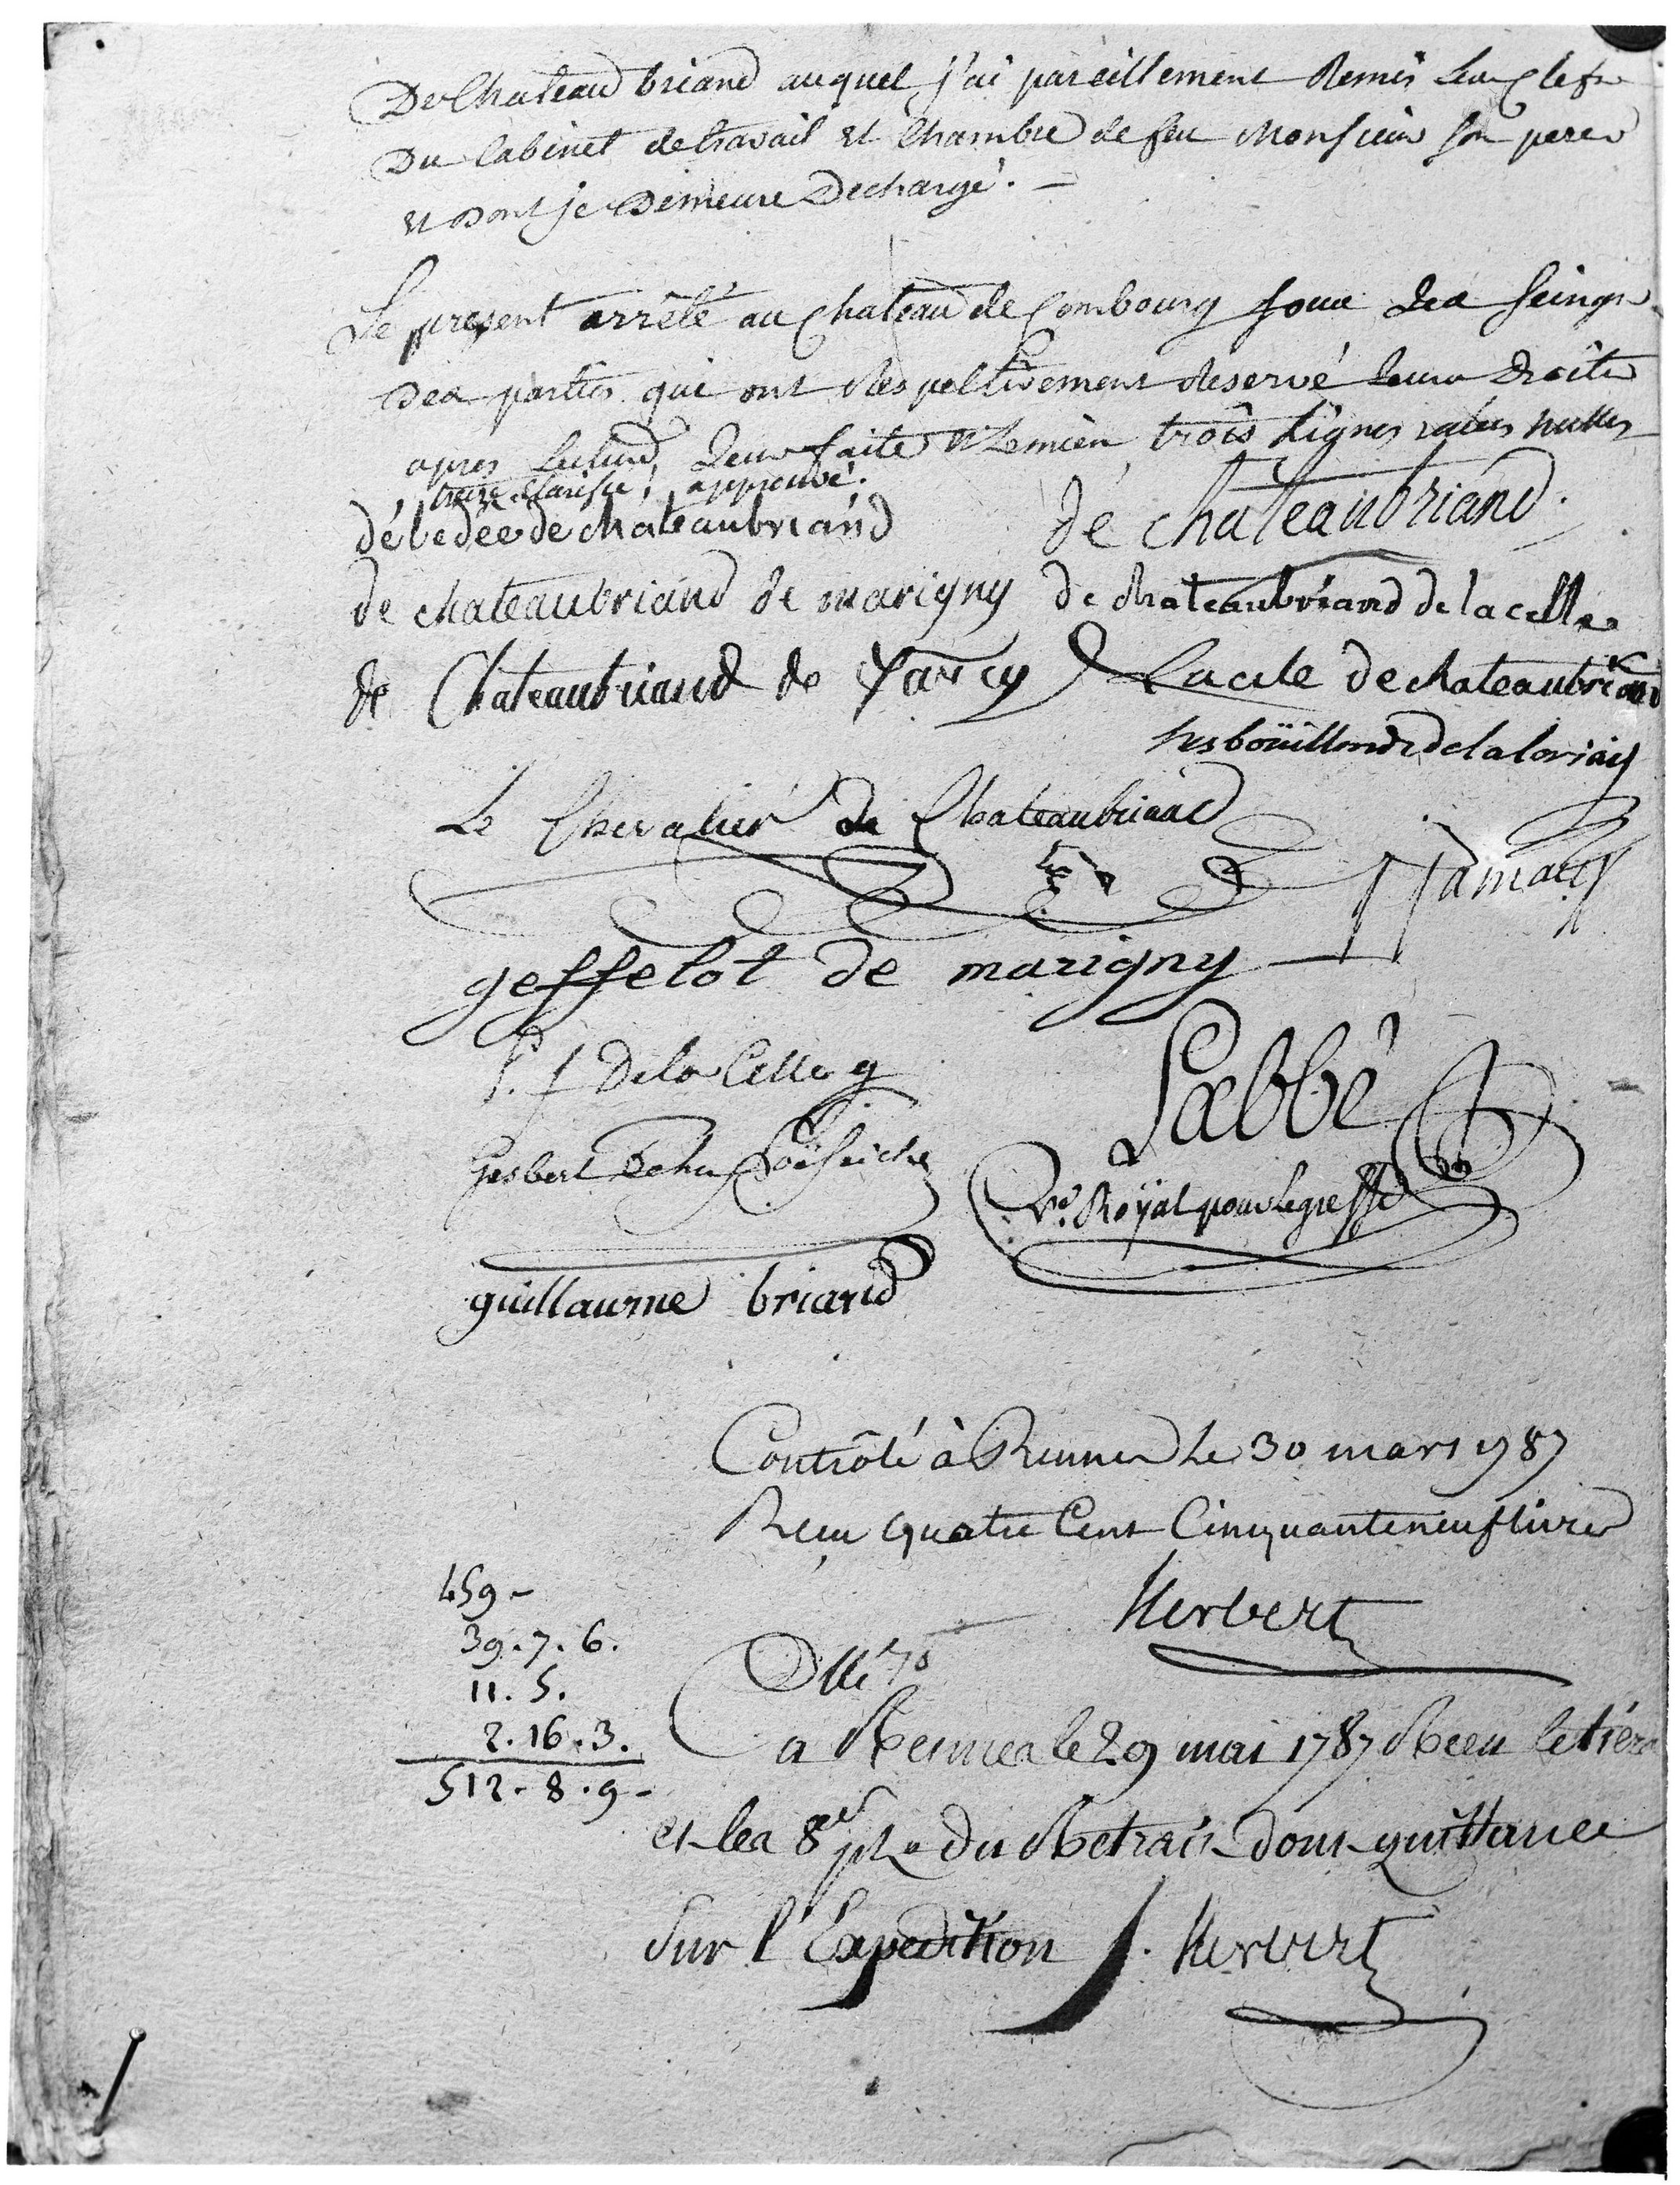 De Chateaubriand auquel j'ai pareillement Remis Les Clefs
Du Cabinet de travail et Chambre de feu Monsieur son pere
et Dont je Demeure Dechargé. —
Le present arrêté au Chateau de Combourg sous Les seings
Des parties qui ont Respectivement Reservé Leurs Droits
apres Lecture Leur faite et Le mien, trois Lignes nulles
approuvé.
dé bedée de chateaubriand
de chateaubriand.
de chateaubriand de marigny
de chateaubriand de la celle
de Chateaubriand de farcy
Lucile de chateaubriand
hs boüillondedelaloriais
Le Chevalier de Chateaubriand
geffelot de marigny
P. f De la Celle
Gesbert
Labbé
Royal pour le greffe
guillaume briand
Contrôlé à Rennes Le 30 mars 1787
Reçu quatre Cent Cinquante neuf livres
Herbert
459 -
39. 7. 6.
11. 5.
2. 16. 3.
512. 8. 9 -
a Rennes le 29 mai 1787 Recu
et les 8 du Retrait dont quittance
Sur l'Expedition. Herbert